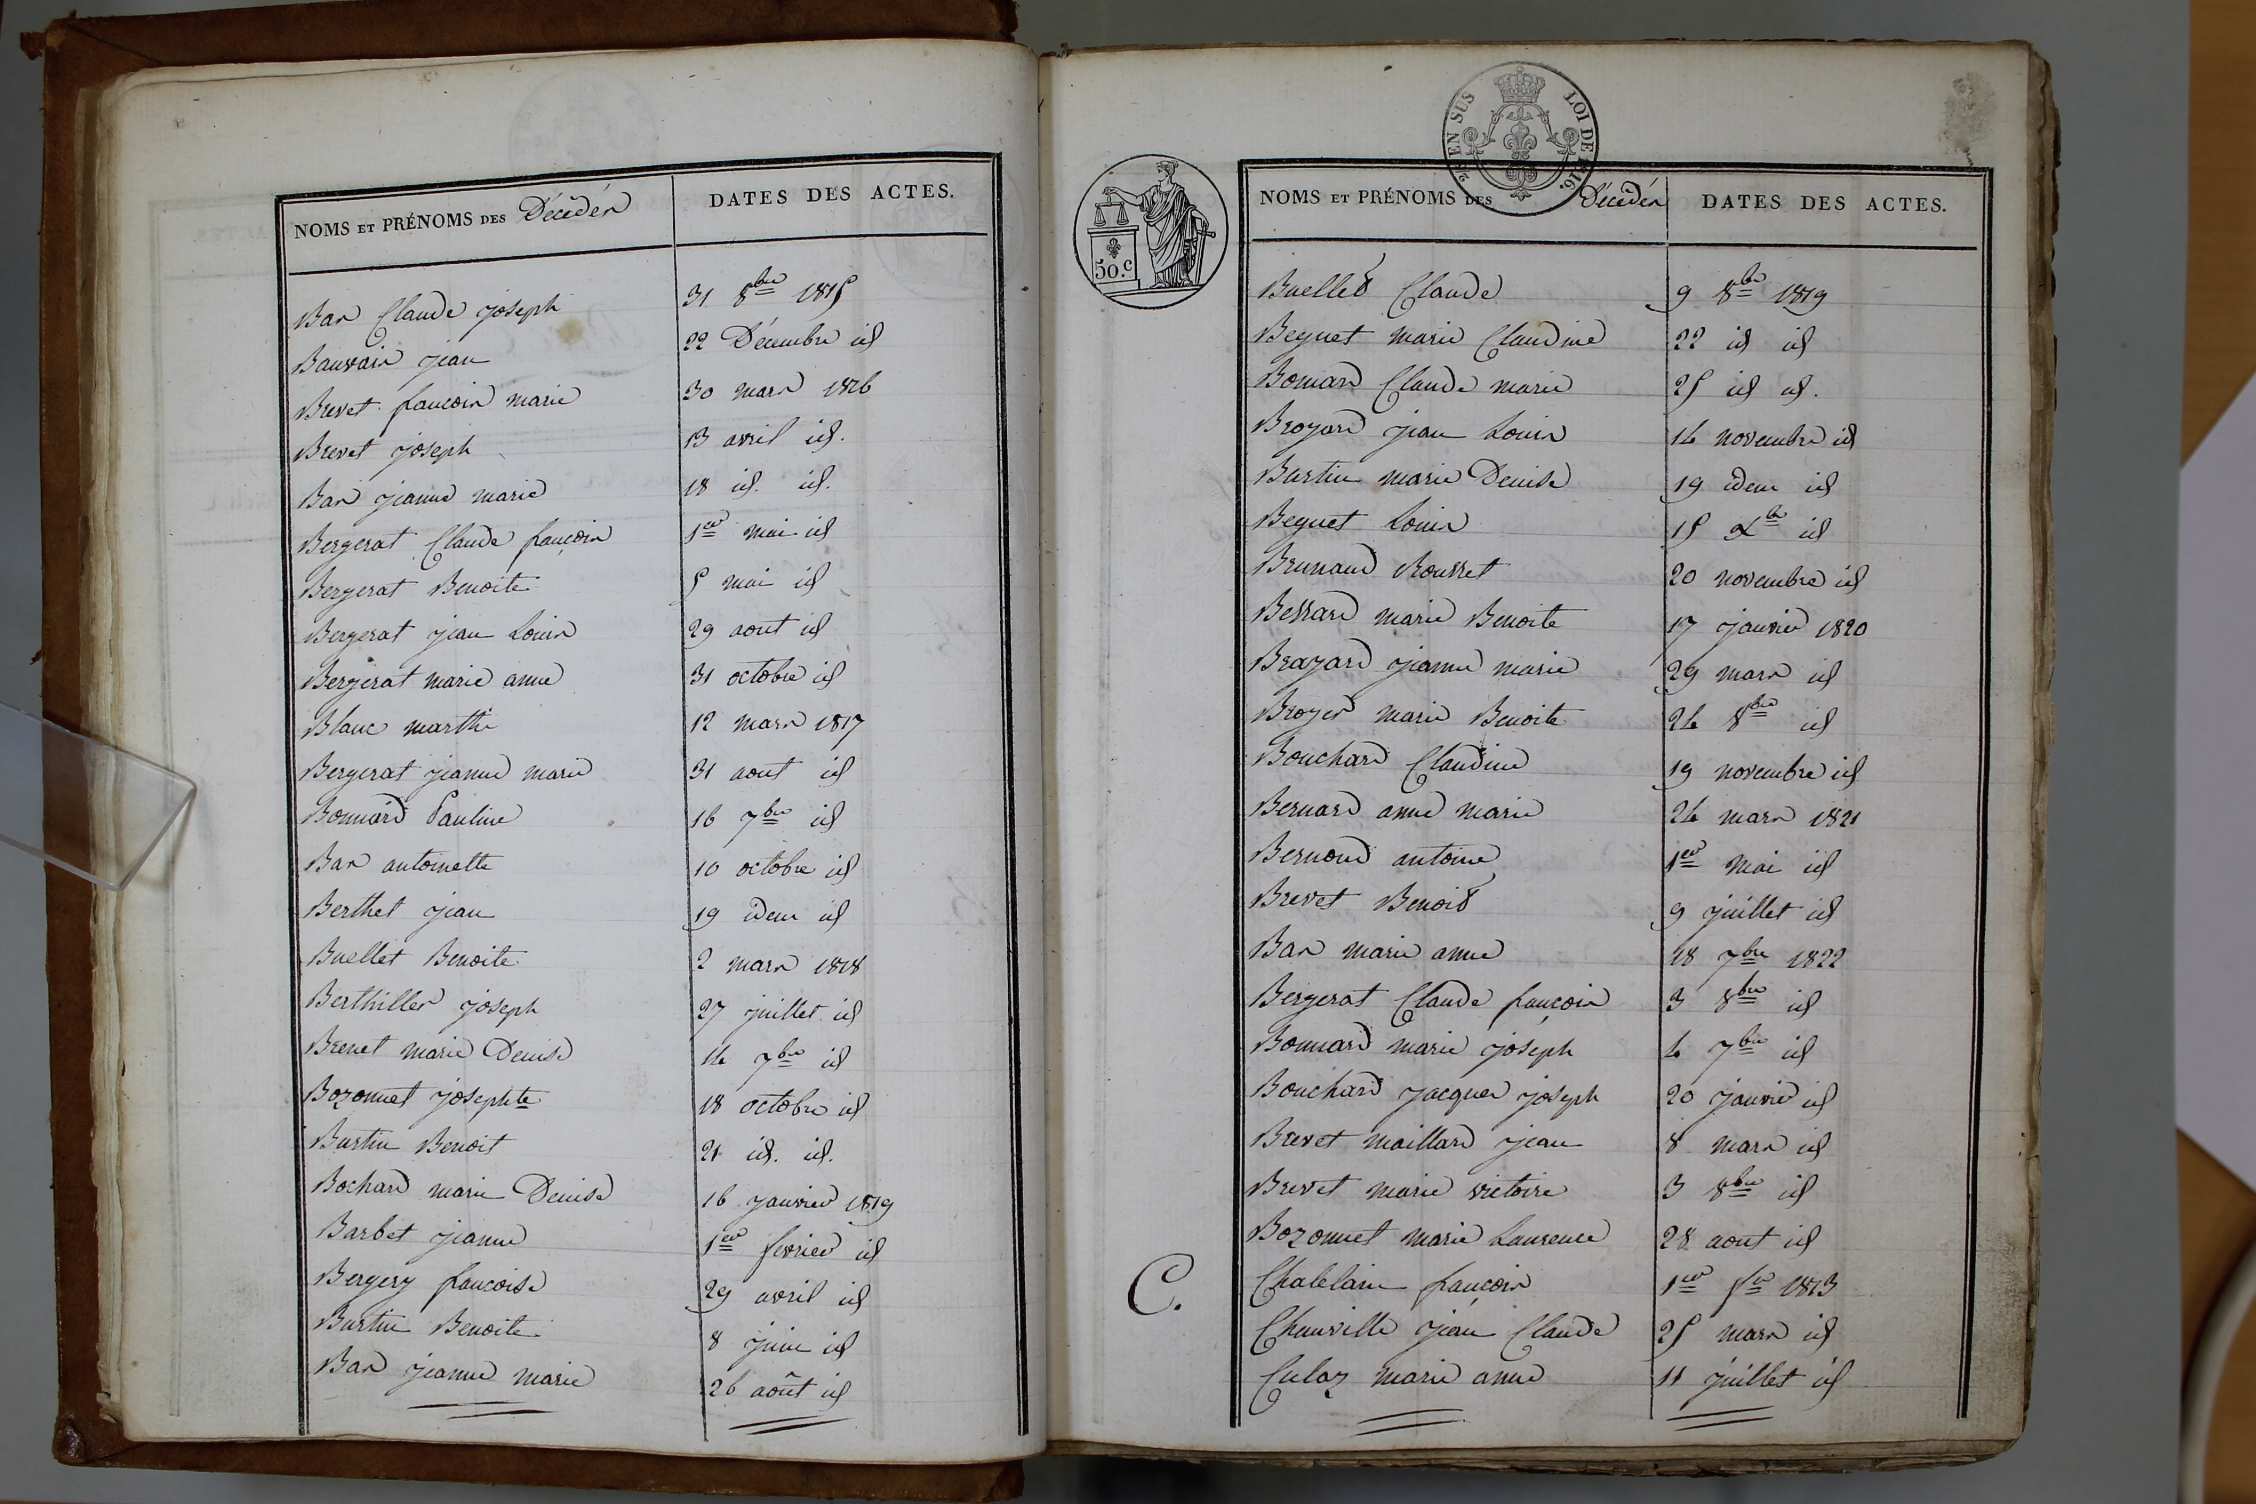 NOMS ET PRÉNOMS DES Décédés
DATES DES ACTES.
Bas Claude joseph 31 8bre 1815
Bauvain jean 22 Décembre id
Brevet françois marie 30 mars 1816
Brevet joseph 13 avril id.
Bas jeanne marie 18 id. id.
Bergerat Claude françois 1er mai id
Bergerat Benoite 5 mai id
Bergerat jean Louis 29 aout id
Bergerat marie anne 31 octobre id
Blanc marthe 12 mars 1817
Bergerat jeanne marie 31 aout id
Bonnard Pauline 16 7bre id
Bas antoinette 10 octobre id
Berthet jean 19 idem id
Buellet Benoite 2 mars 1818
Berthiller joseph 27 juillet id
Brevet marie Denise 14 7bre id
Bozonnet josephte 18 octobre id
Burtin Benoit 21 id. id.
Bochard marie Denise 16 janvier 1819
Barbet jeanne 1er fevrier id
Bergery françoise 29 avril id
Burtin Benoite 8 juin id
Bas jeanne marie 26 août id
LOI DE 1816.
EN SUS
50.c
NOMS ET PRÉNOMS DES Décédés
DATES DES ACTES.
Buellet Claude 9 8bre 1819
Beguet marie Claudine 22 id id
Bonnard Claude marie 25 id id.
Broyard jean Louis 14 novembre id
Burtin marie Denise 19 idem id
Beguet Louis 15 xbre id
Brunaud Rousset 20 novembre id
Bessard marie Benoite 17 janvier 1820
Brazard jeanne marie 29 mars id
Broyer marie Benoite 24 8bre id
Bouchard Claudine 19 novembre id
Bernard anne marie 24 mars 1821
Bernoud antoine 1er mai id
Brevet Benoit 9 juillet id
Bas marie anne 18 7bre 1822
Bergerat Claude françois 3 8bre id
Bonnard marie joseph 4 7bre id
Bouchard jacques joseph 20 janvier id
Brevet maillard jean 8 mars id
Brevet marie victoire 3 8bre id
Bozonnet marie Laurence 28 aout id
C.
Chatelain françois 1er fer 1813
Chauville jean Claude 25 mars id
Culaz marie anne 11 juillet id